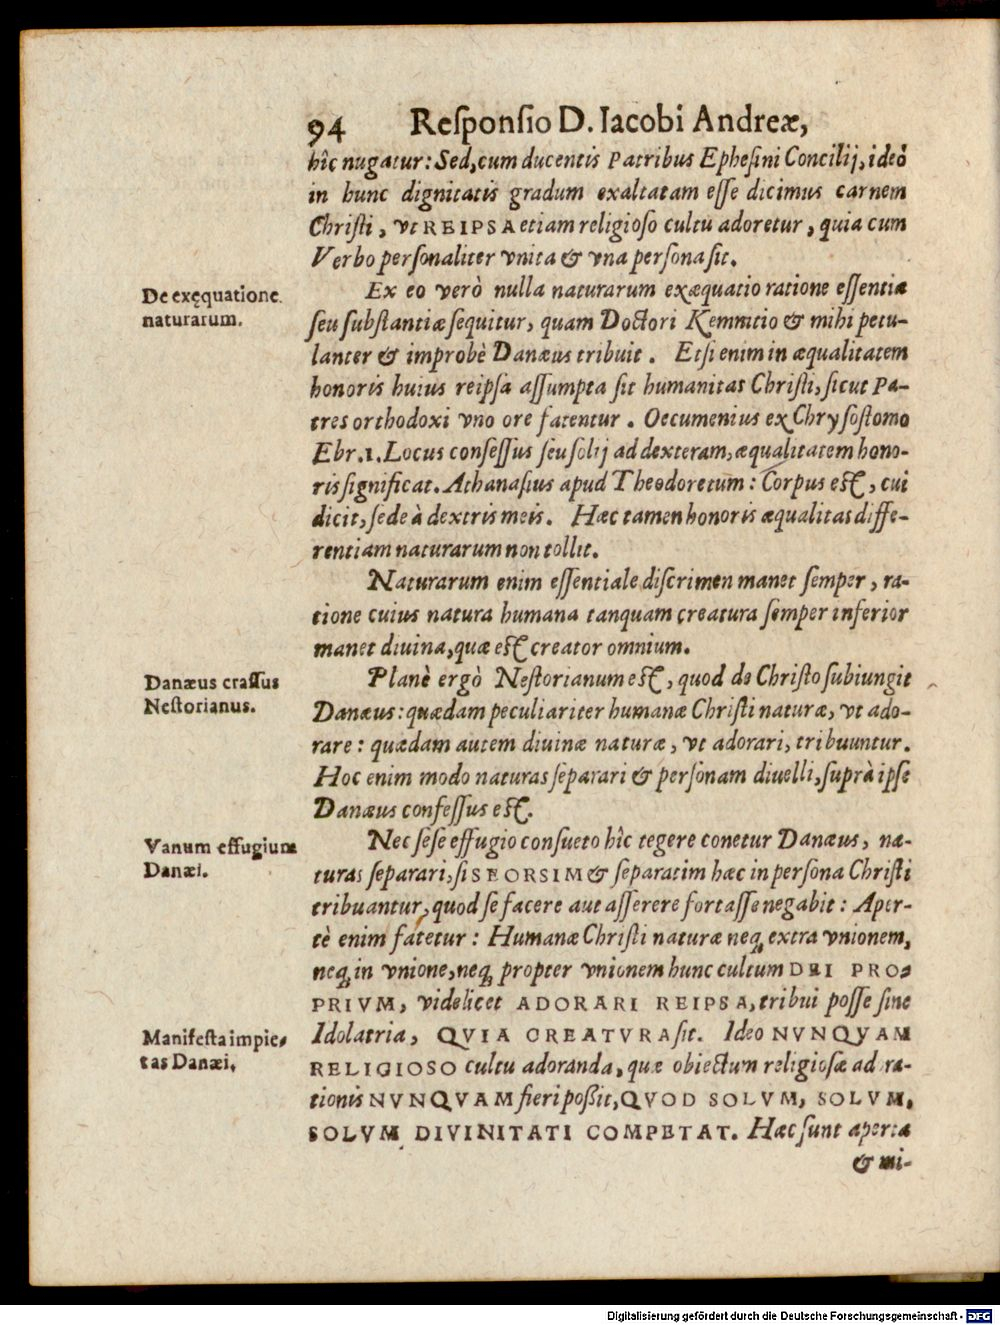 94 Reſponſio D. Iacobi Andreæ,
hîc nugatur: Sed, cum ducentis Patribus Epheſini Concilij, ideò
in hunc dignitatis gradum exaltatam eſſe dicimus carnem
Chriſti, vt REIPSA etiam religioſo cultu adoretur, quia cum
Verbo perſonaliter vnita & vna perſona ſit.
De exęquatione
naturarum.
Ex eo verò nulla naturarum exæquatio ratione eſſentiæ
ſeu ſubſtantiæ ſequitur, quam Doctori Kemnitio & mihi petu-
lanter & improbè Danæus tribuit. Etſi enim in æqualitatem
honoris huius reipſa aſſumpta ſit humanitas Chriſti, ſicut Pa-
tres orthodoxi vno ore fatentur. Oecumenius ex Chryſoſtomo
Ebr. 1. Locus conſeſſus ſeu ſolij ad dexteram, æqualitatem hono-
ris ſignificat. Athanaſius apud Theodoretum: Corpus eſt, cui
dicit, ſede à dextris meis. Hæc tamen honoris æqualitas diffe-
rentiam naturarum non tollit.
Naturarum enim eſſentiale diſcrimen manet ſemper, ra-
tione cuius natura humana tanquam creatura ſemper inferior
manet diuina, quæ eſt creator omnium.
Danæus craſſus
Neſtorianus.
Planè ergò Neſtorianum eſt, quod de Chriſto ſubiungit
Danæus: quædam peculiariter humanæ Chriſti naturæ, vt ado-
rare: quædam autem diuinæ naturæ, vt adorari, tribuuntur.
Hoc enim modo naturas ſeparari & perſonam diuelli, ſuprà ipſe
Danæus confeſſus eſt.
Vanum effugium
Danæi.
Nec ſeſe effugio conſueto hîc tegere conetur Danæus, na-
turas ſeparari, ſi SEORSIM & ſeparatim hæc in perſona Chriſti
tribuantur, quod ſe facere aut aſſerere fortaſſe negabit: Aper-
tè enim fatetur: Humanæ Chriſti naturæ neq́ extra vnionem,
neq́ in vnione, neq́ propter vnionem hunc cultum DEI PRO-
PRIVM, videlicet ADORARI REIPSA, tribui poſſe ſine
Manifeſta impie-
tas Danæi.
Idolatria, QVIA CREATVRA ſit. Ideo NVNQVAM
RELIGIOSO cultu adoranda, quæ obiectum religioſæ adora-
tionis NVNQVAM fieri poßit, QVOD SOLVM, SOLVM,
SOLVM DIVINITATI COMPETAT. Hæc ſunt aperta
& mi-
Digitalisierung gefördert durch die Deutsche Forschungsgemeinschaft - DFG